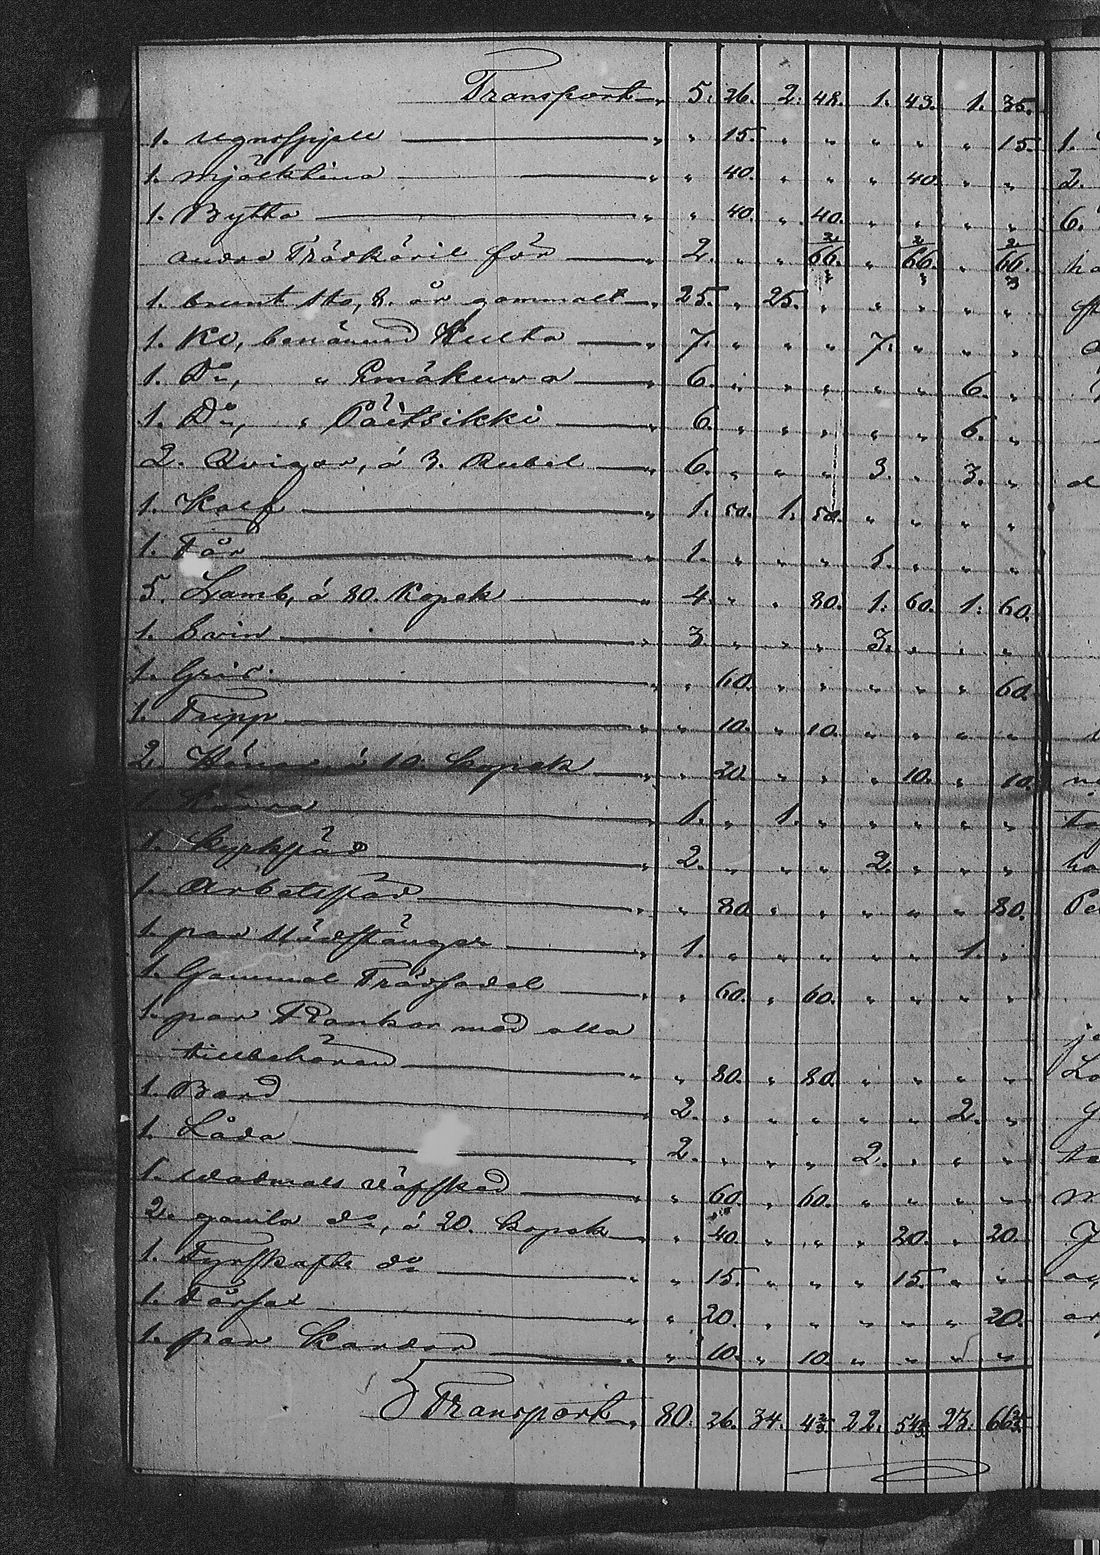 Transport " 5. 26. 2. 48. 1. 43. 1. 35.
1. " " 15. " " " " " 15.
1. mjölkkina " " 40. " " " 40. " "
1. Bytta " " 40. " 40. " " " "
andre Trädkäril för " 2. " " 66 2/3 " 66 2/3 " 66 2/3
1. brunt Sto, 8. år gammalt " 25. " 25. " " " " "
1. Ko, benämnd Hulta " 7. " " " 7. " " "
1. Do, " Emäkurva " 6. " " " " " 6. "
1. Do, " Päitsikki " 6. " " " " " 6. "
2. Qvigor, á 3. Rubel " 6. " " " 3. " 3. "
1. Kalf " 1. 50. 1. 50. " " " "
1. Får " 1. " " " 1. " " "
5. Lamb, á 80. Kopek " 4. " " 80. 1. 60. 1. 60.
1. Svin " 3. " " " 3. " " "
1. Gris " " 60. " " " " " 60.
1. Tupp " " 10. " 10. " " " "
2. Hönor á 10. kopek " " 20. " " " 10. " 10.
1. Kärra " 1. " 1. " " " " "
1. Kyrksläd " 2. " " " 2. " " "
1. Arbetssläd " " 80. " " " " " 80.
1. par Slädstänger " 1. " " " " " 1. "
1. Gammal Trädsadel " " 60. " 60. " " " "
1. par Rankor med alla
tillbehören " " 80. " 80. " " " "
1. Bord " 2. " " " " " 2. "
1. Låda " 2. " " " 2. " " "
1. wadmals väfsked " " 60. " 60. " " " "
2. gamla do, á 20. kopek " " 40. " " " 20. " 20.
1. Fyrskafts do " " 15. " " " 15. " "
1. Fårsax " " 20. " " " " " 20.
1. par Kardor " " 10. " 10. " " " "
Transport " 80. 26. 34. 4 2/3 22. 54 2/3 23.